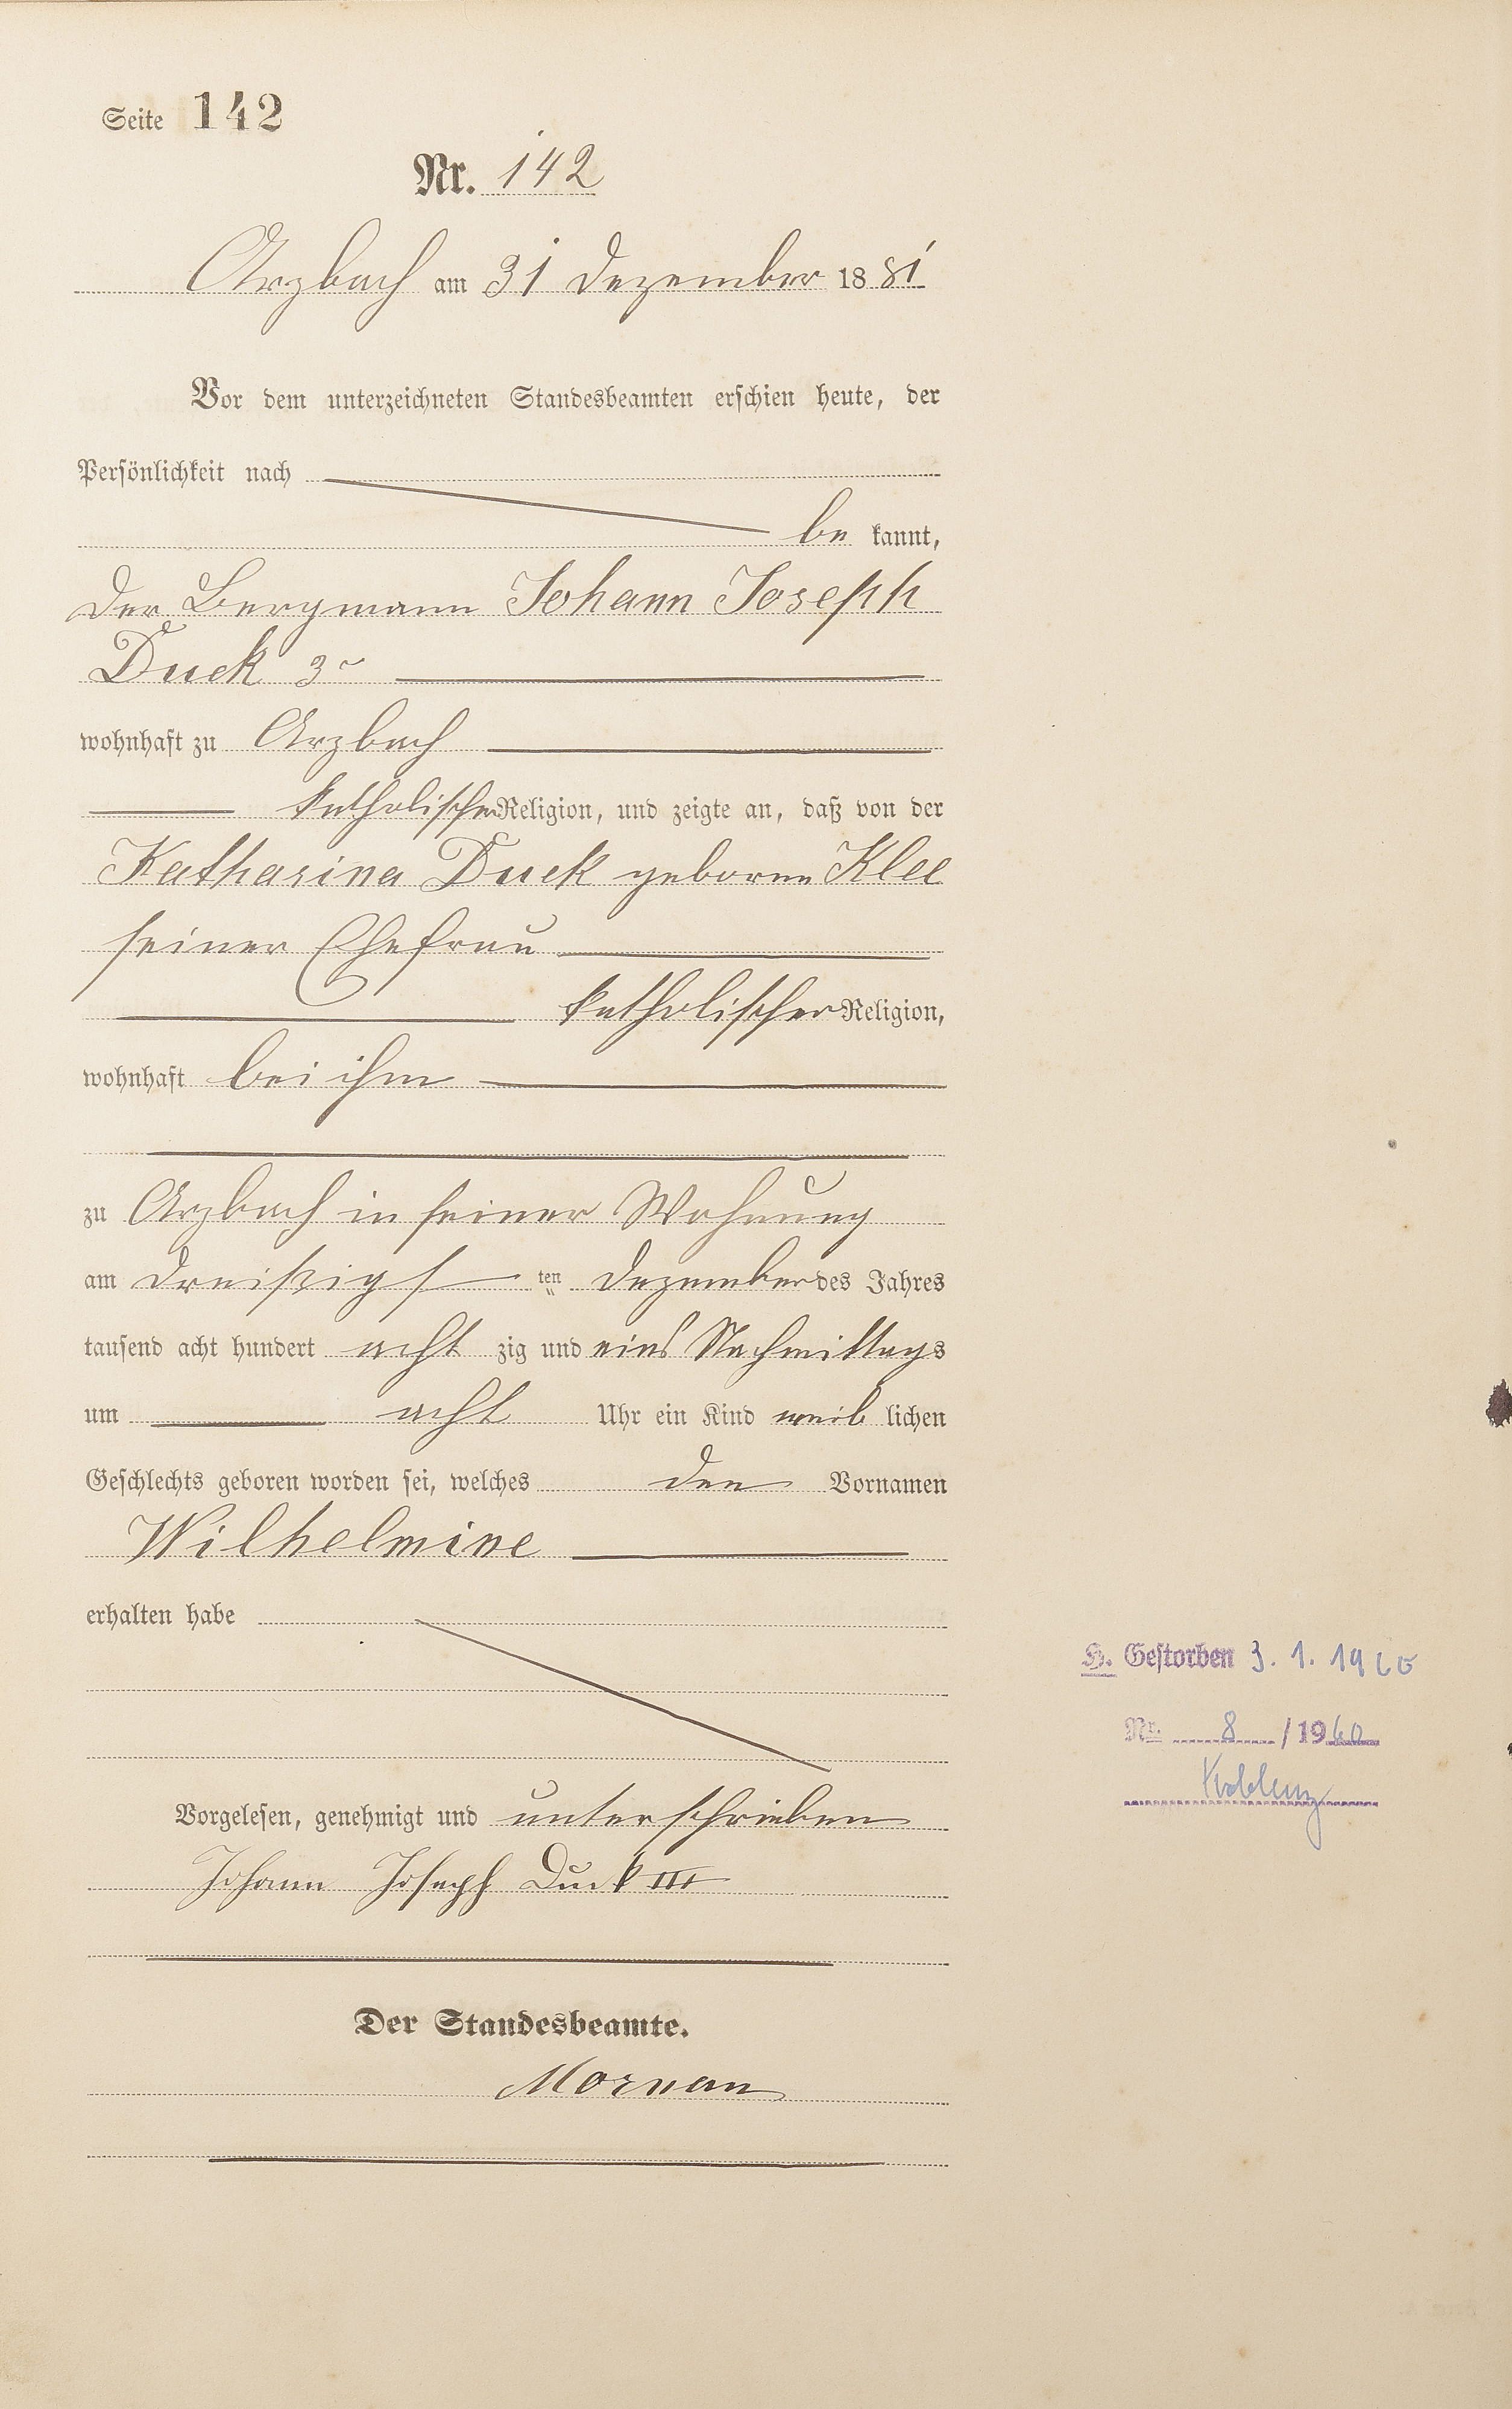 Seite 142
Nr. 142
Arzbach am 31 Dezember 1881
Vor dem unterzeichneten Standesbeamten erschien heute, der
Persönlichkeit nach
be kannt,
der Bergmann Johann Joseph
Duck 3r
wohnhaft zu Arzbach
katholischer Religion, und zeigte an, daß von der
Katharina Duck geborne Klee
seiner Ehefrau
katholischer Religion,
wohnhaft bei ihm
zu Arzbach in seiner Wohnung
am dreißigs ten Dezember des Jahres
tausend acht hundert acht zig und eins Nachmittags
um acht Uhr ein Kind weib lichen
Geschlechts geboren worden sei, welches den Vornamen
Wilhelmine
erhalten habe
H. Gestorben 3. 1. 1960
Nr. 8 / 1960
Koblenz
Vorgelesen, genehmigt und unterschrieben
Johann Joseph Duck III
Der Standesbeamte.